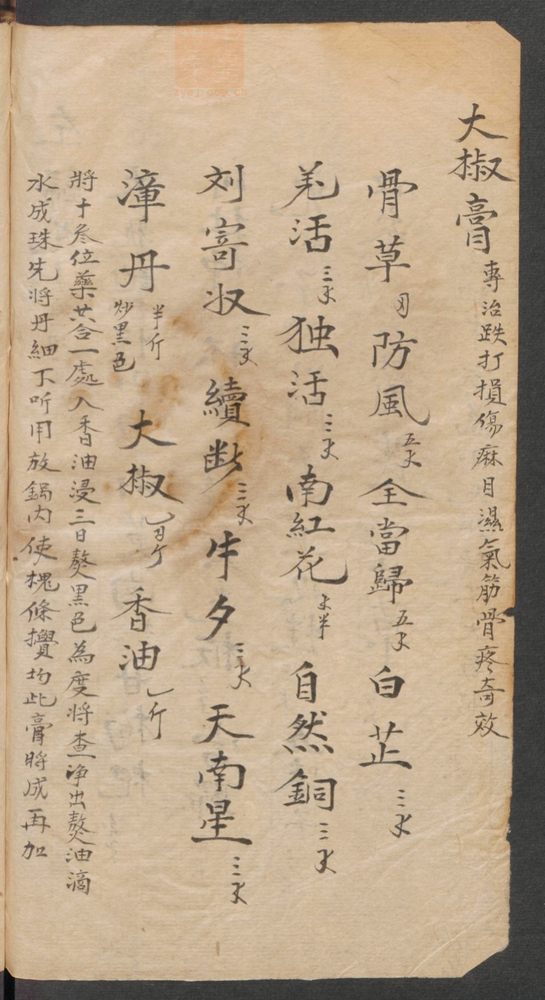 大椒膏 專治跌打損傷麻目濕氣筋骨疼奇效
骨草 防風 五 全當歸 五 白芷 三
羌活 三 独活 三 南紅花 半 自然銅 三
刘寄奴 三 續断 三 牛夕 三 天南星 三
漳丹 半斤 炒黑色 大椒 香油 斤
將十叁位藥共合一處入香油浸三日熬黑色為度将查净出熬油滴
水成珠先将丹細下听用放鍋内使槐條攪均此膏將成再加